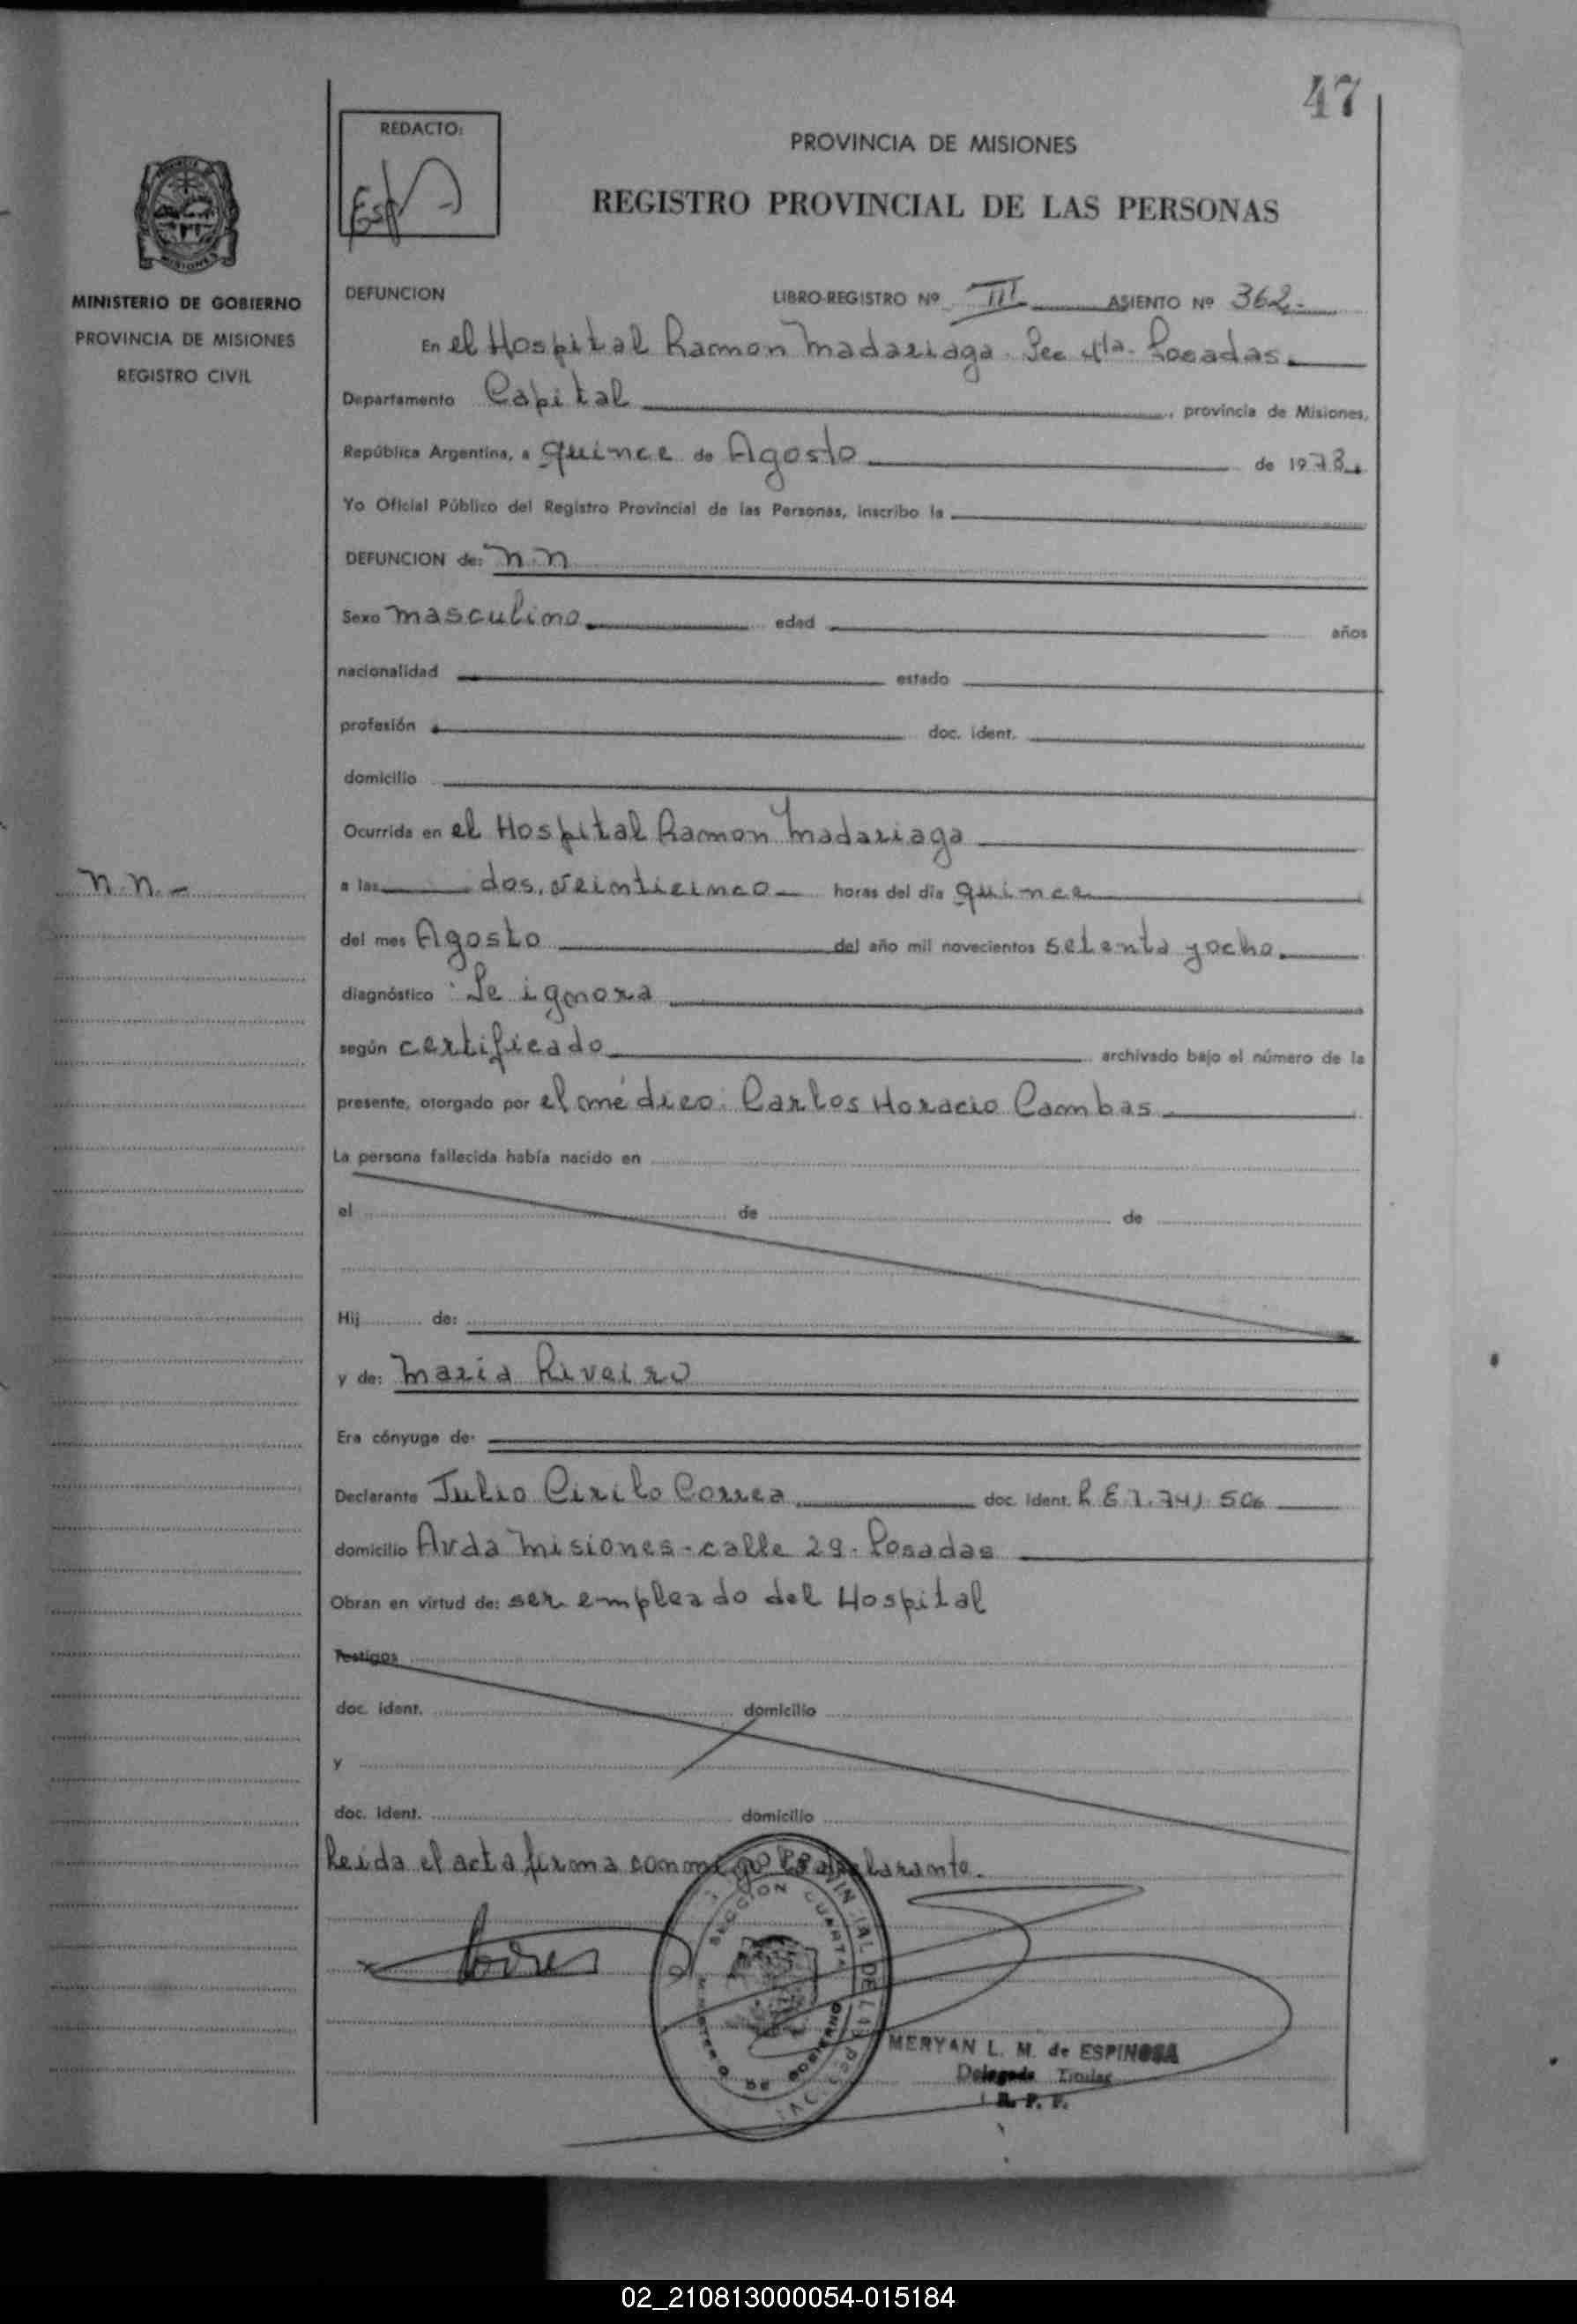 47
REDACTO:
PROVINCIA DE MISIONES
REGISTRO PROVINCIAL DE LAS PERSONAS
MINISTERIO DE GOBIERNO
PROVINCIA DE MISIONES
REGISTRO CIVIL
DEFUNCION LIBRO-REGISTRO Nº III ASIENTO Nº 362.-
En el Hospital Ramon Madariaga. Sec 4ta. Posadas
Departamento Capital, provincia de Misiones,
República Argentina, a quince de Agosto de 1978.
Yo Oficial Público del Registro Provincial de las Personas, inscribo la
DEFUNCION de: n.n
Sexo masculino edad años
nacionalidad estado
profesión doc. ident.
domicilio
Ocurrida en el Hospital Ramon Madariaga
n.n.-
a las dos, veinticinco horas del día quince
del mes Agosto del año mil novecientos setenta y ocho.
diagnóstico Se ignora
según certificado archivado bajo el número de la
presente, otorgado por el médico: Carlos Horacio Cambas
La persona fallecida había nacido en
el de de
Hij de:
y de: Maria Riveiro
Era cónyuge de:
Declarante Julio Cirilo Correa doc. Ident. L E 7.741.506
domicilio Avda Misiones - calle 29 - Posadas
Obran en virtud de: ser empleado del Hospital
Testigos
doc. ident. domicilio
y
doc. ident. domicilio
Leida el acta firma conmigo el declarante.
SECCION CUARTA
MINISTERIO DE GOBIERNO
MERYAN L. M. de ESPINOSA
Delegada Titular
R. P. P.
02_210813000054-015184